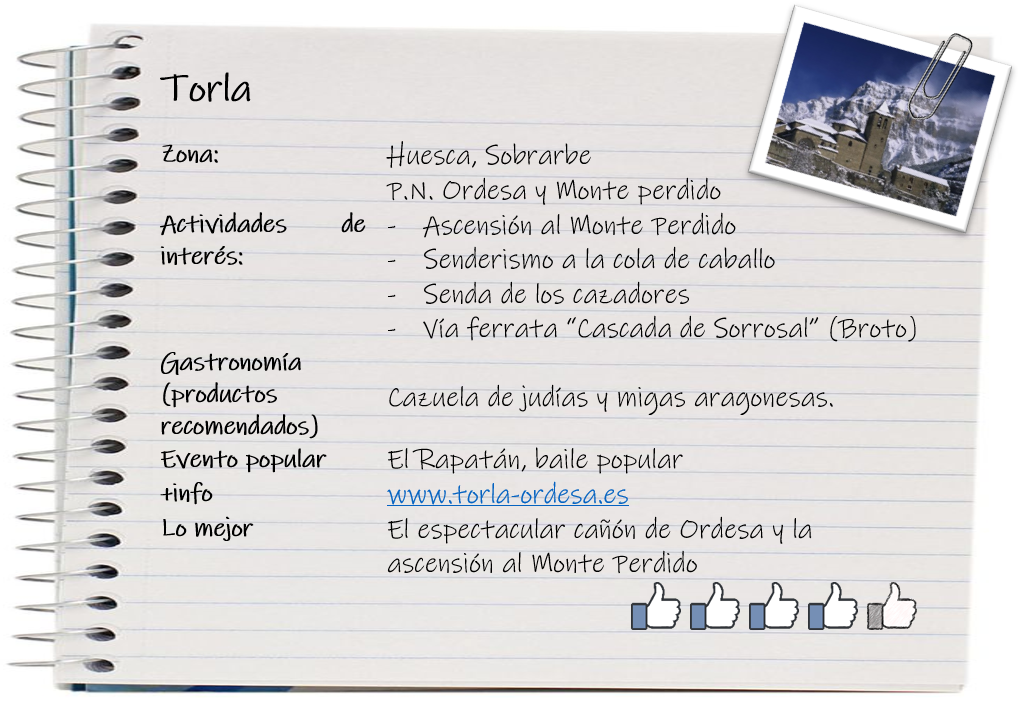 Torla
Zona: Huesca, Sobrarbe
P.N. Ordesa y Monte perdido
Actividades de interés:
- Ascensión al Monte Perdido
- Senderismo a la cola de caballo
- Senda de los cazadores
- Vía ferrata “Cascada de Sorrosal” (Broto)
Gastronomía
(productos
recomendados)
Cazuela de judías y migas aragonesas.
Evento popular El Rapatán, baile popular
+info www.torla-ordesa.es
Lo mejor El espectacular cañón de Ordesa y la
ascensión al Monte Perdido